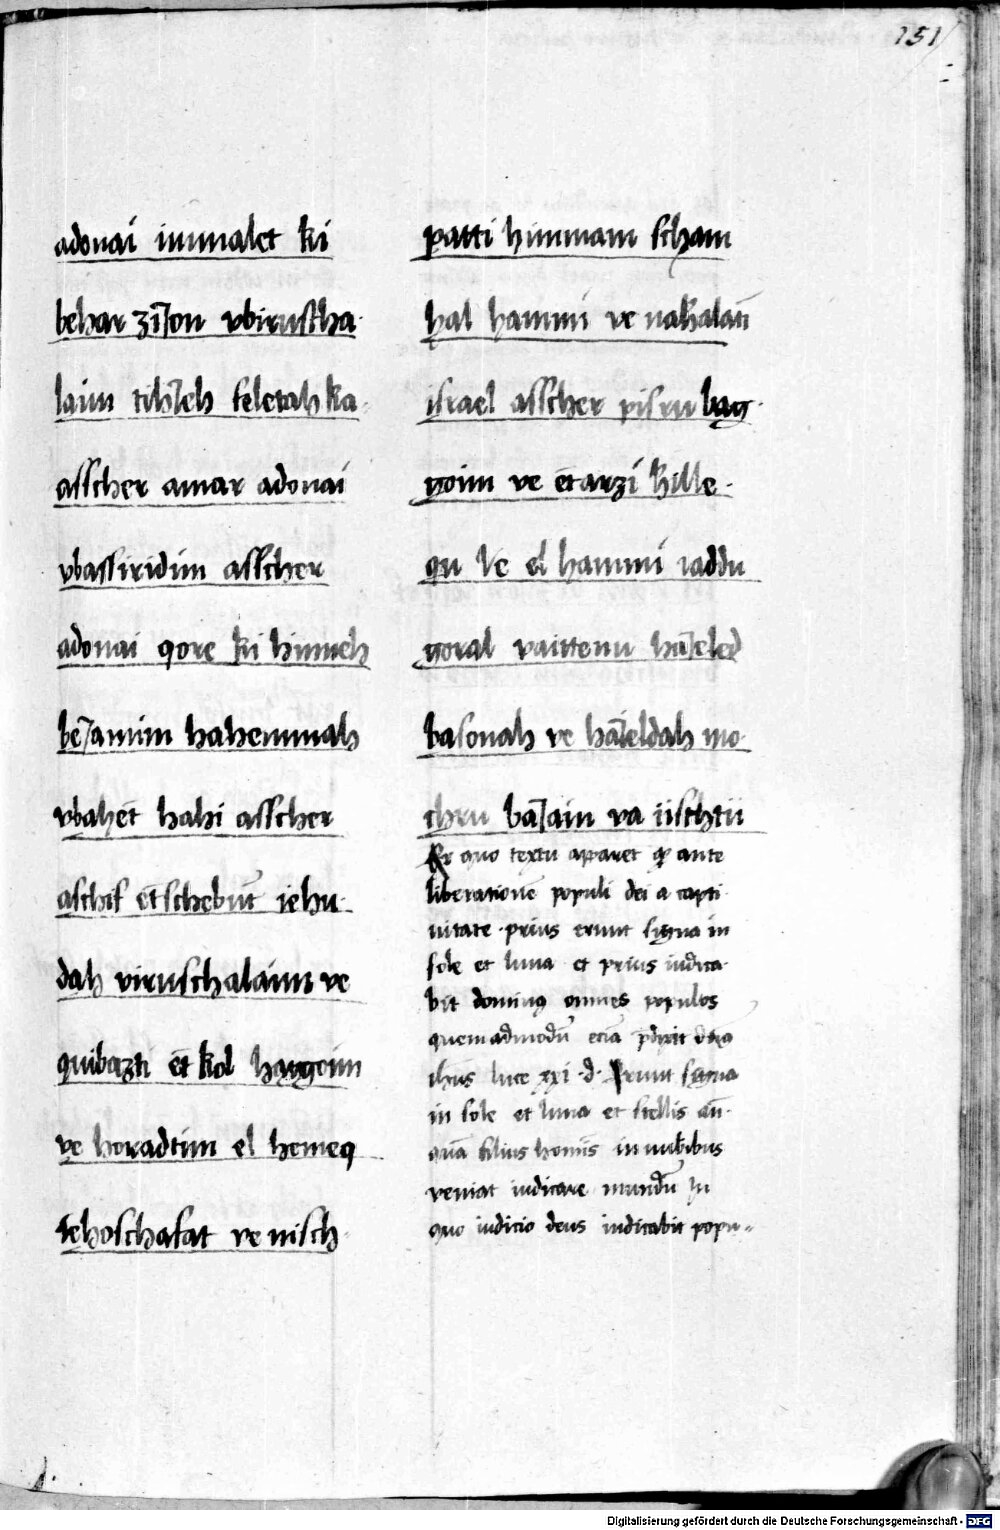 151
adonai immalet ki
behar zijon vbiruscha
laim tihieh feletah ka
asscher amar adonai
vbassiridim asscher
adonai qore ki hinneh
beiamim hahemmah
vbahet hahi asscher
aschif et schebut iehu
dah viruschalaim ve
quibazti et kol haggoim
ve horadtim el hemeq
iehoschafat ve nisch
patti himmam scham
hal hammi ve nahalati
israel asscher pisru bag
goim ve et arzi hille
qu Ve el hammi iaddu
goral vaittenu haieled
basonah ve haieldah mo
chru baiain va iischtu
Ex quo textu aparet qꝫ ante
liberationē populi dei a capti
uitate prius erunt signa in
sole et luna et prius iudica
bit dominꝰ omnes populos
quemadmodū eciā p̄dixit dn̄s
ihūs luce xxi d. Erunt signa
in sole et luna et stellis
quā filius hoīs in nubibus
veniat iudicare mundū In
quo iudicio deus iudicabit popu
Digitalisierung gefördert durch die Deutsche Forschungsgemeinschaft - DFG